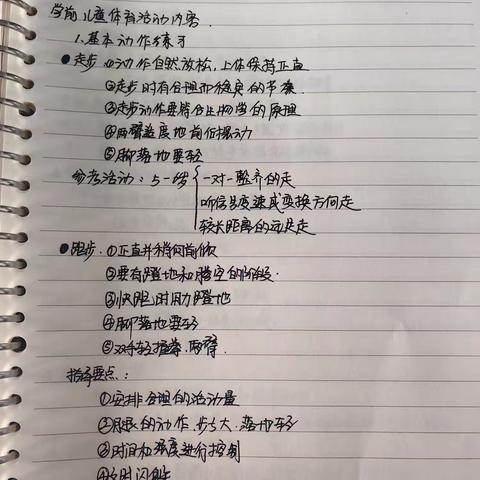 学前儿童体育活动内容.
1.基本动作练习
●走步 ①动作自然放松,上体保持正直
②走步时有合理而稳定的节奏.
③走步动作要符合生物学的原理
④两臂适度地前后摆动
⑤脚落地要轻
参考活动:5-6岁{一对一整齐的走
听信号变速或变换方向走
较长距离的远足走
●跑步.①正直并稍向前倾
②要有蹬地和腾空的阶段.
③快跑时用力蹬地
④脚落地要轻
⑤双手轻握拳.两臂.
指导要点:
①安排合理的活动量
②跑的动作.步子大.落地轻
③时间和强度进行控制
④及时闪躲